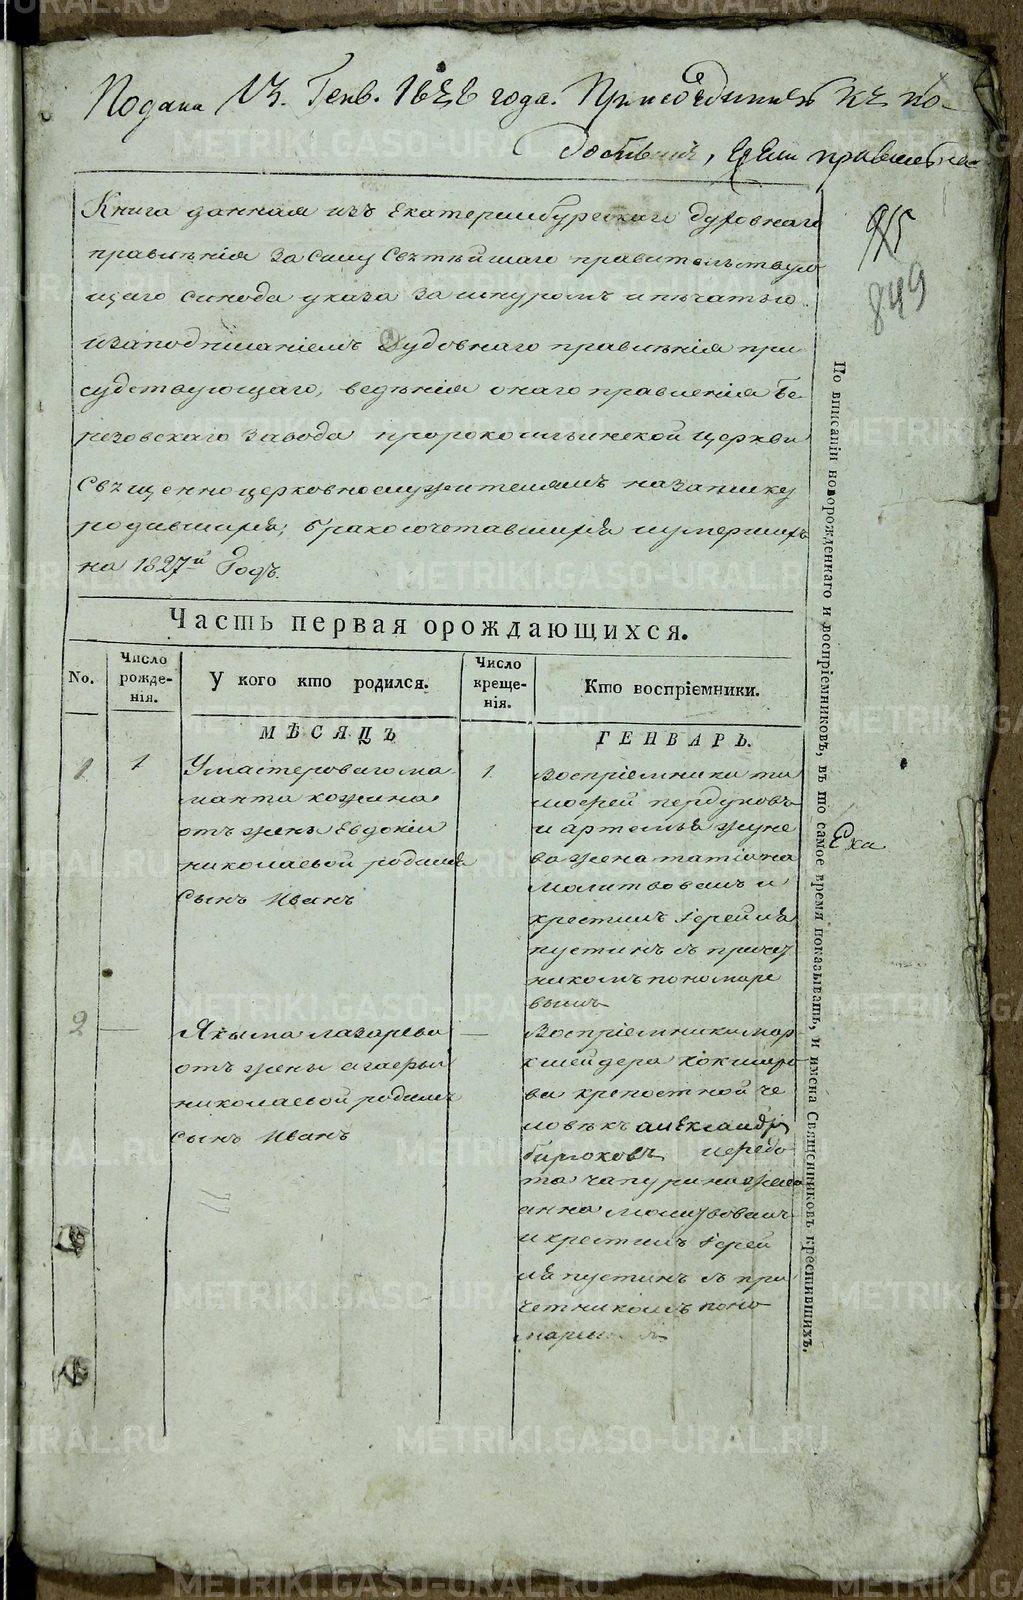 Подана 13. Генв. 1828 года. Присоединить къ по-
Книга данная изъ екатеринбургскаго духовнаго
правленія За силу Святѣйшаго правительствую
щаго синода указа За шнуромъ и печатью
изаподписаніемъ Духовнаго правленія при
судствующаго, ведѣнія онаго правленія Бе-
резовскаго завода пророкоильинской церкви
Священноцерковнослужителямъ на записку
родившихся, бракосочетавшихся и умершихъ
на 1827й Годъ.
849
Часть первая орождающихся.
No.
Число рожде-нія.
У кого кто родился.
Число креще-нія.
Кто воспріемники.
МѢСЯЦЪ
ГЕНВАРЬ.
1
1
У мастероваго ма
манта кожина
отъ жены Евдокіи
николаевой родился
Сынъ Иванъ
1.
воспріемники ти
мофей пердуновъ
и артемья жуне
ва жена татіана
молитвовалъ и
крестилъ Іерей ля
пустинъ съ причет
никомъ пономаре
вымъ
2
—
Якыма лазарева
отъ жены агафьи
николаевой родился
сынъ Иванъ
—
Воспріемники мар
кшейдера кокшаро
ва крепостной че
ловѣкъ александръ
бирюковъ
та чапурина жена
анна молитвовалъ
и крестилъ Іерей
ляпустинъ съ при
четникомъ поно
По вписаніи новорожденнаго и воспріемниковъ, въ то самое время показывать, и имена Священниковъ крестившихъ.
Ека
METRIKI.GASO-URAL.RU